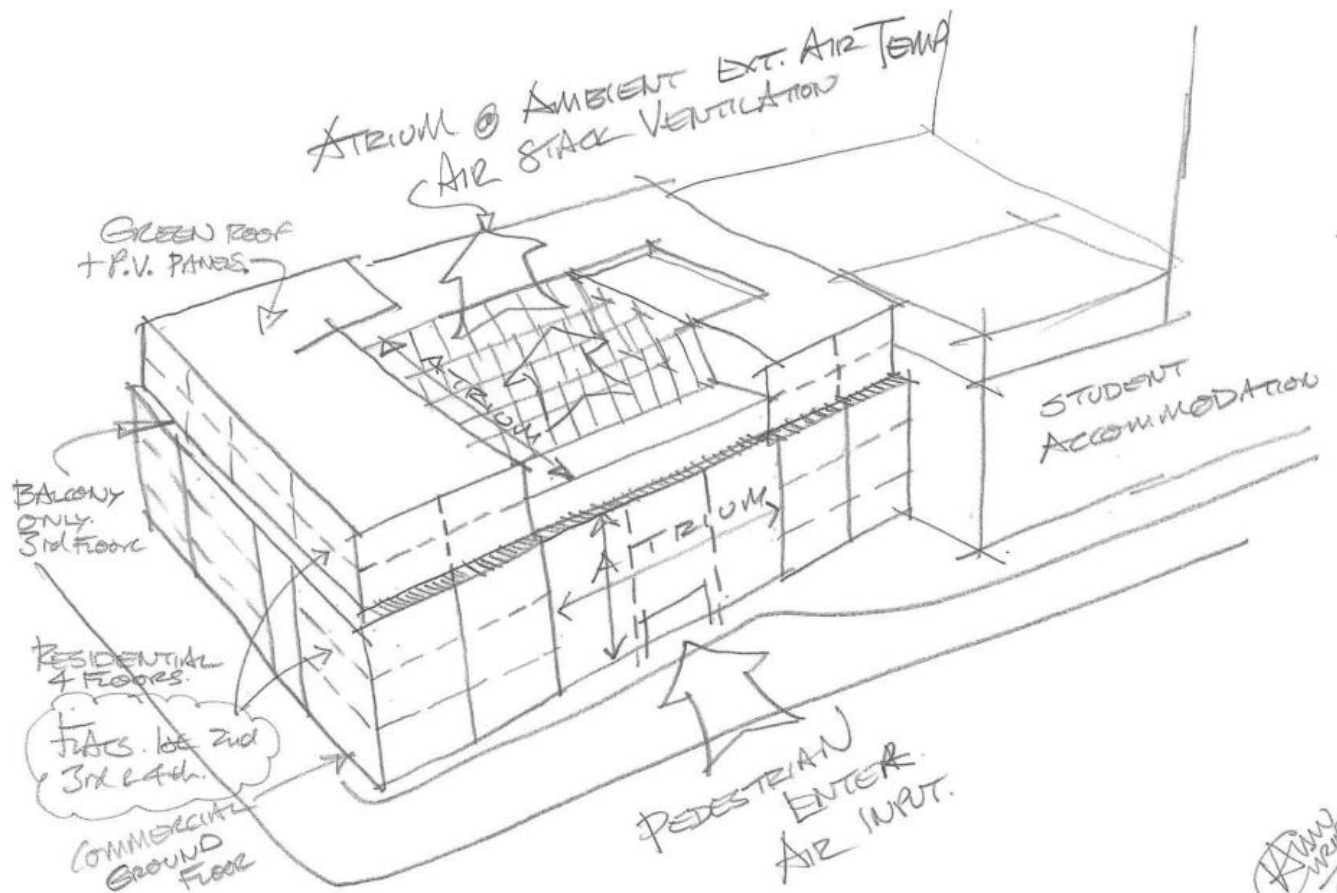 ATRIUM @ AMBIENT EXT. AIR TEMP
AIR STACK VENTILATION
GREEN ROOF
+ P.V. PANELS.
ATRIUM
STUDENT
ACCOMMODATION
BALCONY
ONLY.
3rd FLOOR
ATRIUM
RESIDENTIAL
4 FLOORS.
FLATS. 1st 2nd
3rd & 4th.
COMMERCIAL
GROUND
FLOOR
PEDESTRIAN
ENTER.
AIR INPUT.